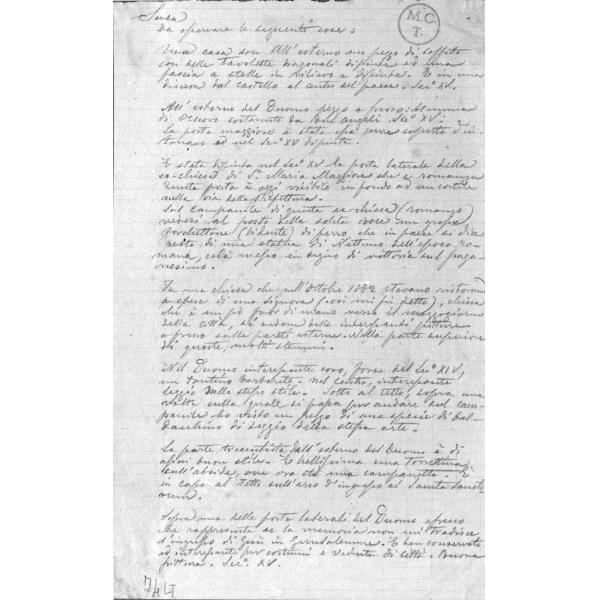 Susa
M.C.
T.
da osservare le seguenti cose:
Una casa con all'esterno un pezzo di soffitto
con delle tavolette diagonali dipinte ed una
fascia a stelle in rilievo e dipinta. È in una
discesa dal castello al centro del paese. Sec° XV.
All'esterno del Duomo pezzo a fresco: stemma
di Vescovo sostenuto da due angeli Sec° XV:
La porta maggiore è stata essa pure coperta d'in-
tonaco ed nel Sec° XV dipinta.
È stata dipinta nel Sec° XV la porta laterale della
ex-chiesa di S.ta Maria Maggiore che è romanza
Questa porta è oggi visibile in fondo ad un cortile
nella via della Prefettura.
Sul campanile di questa ex-chiesa (romanzo)
vedesi al posto della solita croce un grosso
forchettone (bidente) di ferro che in paese si dice
resto di una statua di Nettuno dell'epoca ro-
mana, colà messo in segno di vittoria sul paga-
nesimo.
In una chiesa che nell'Ottobre 1882 stavano ristorando
a spese di una signora (così mi fu detto), chiesa
che è un pò fuor di mano verso il mezzogiorno
della città, si vedono delle interessanti pitture
a fresco sulle pareti esterne. Nella parte superiore
di queste, molti stemmi.
Nel Duomo interessante coro, forse del Sec° XIV,
un tantino barbarito. Nel centro, interessante
leggio dello stesso stile. Sotto al tetto, sopra una
volta sulla quale si passa per andare sul cam-
panile ho visto un pezzo di una specie di bal-
dacchino di seggio della stessa arte.
La parte trecentista dell'esterno del Duomo è di
assai buon stile. È bellissima una torrettina
sull'abside, ove ora sta una campanetta. È
in capo al tetto sull'arco d'ingresso al Sancta Sancto-
rum.
Sopra una delle porte laterali del Duomo affresco
che rappresenta se la memoria non mi tradisce
l'ingresso di Gesù in Gerusalemme. È ben conservato
ed interessante per costumi e vedute di città. Buona
pittura. Sec° XV.